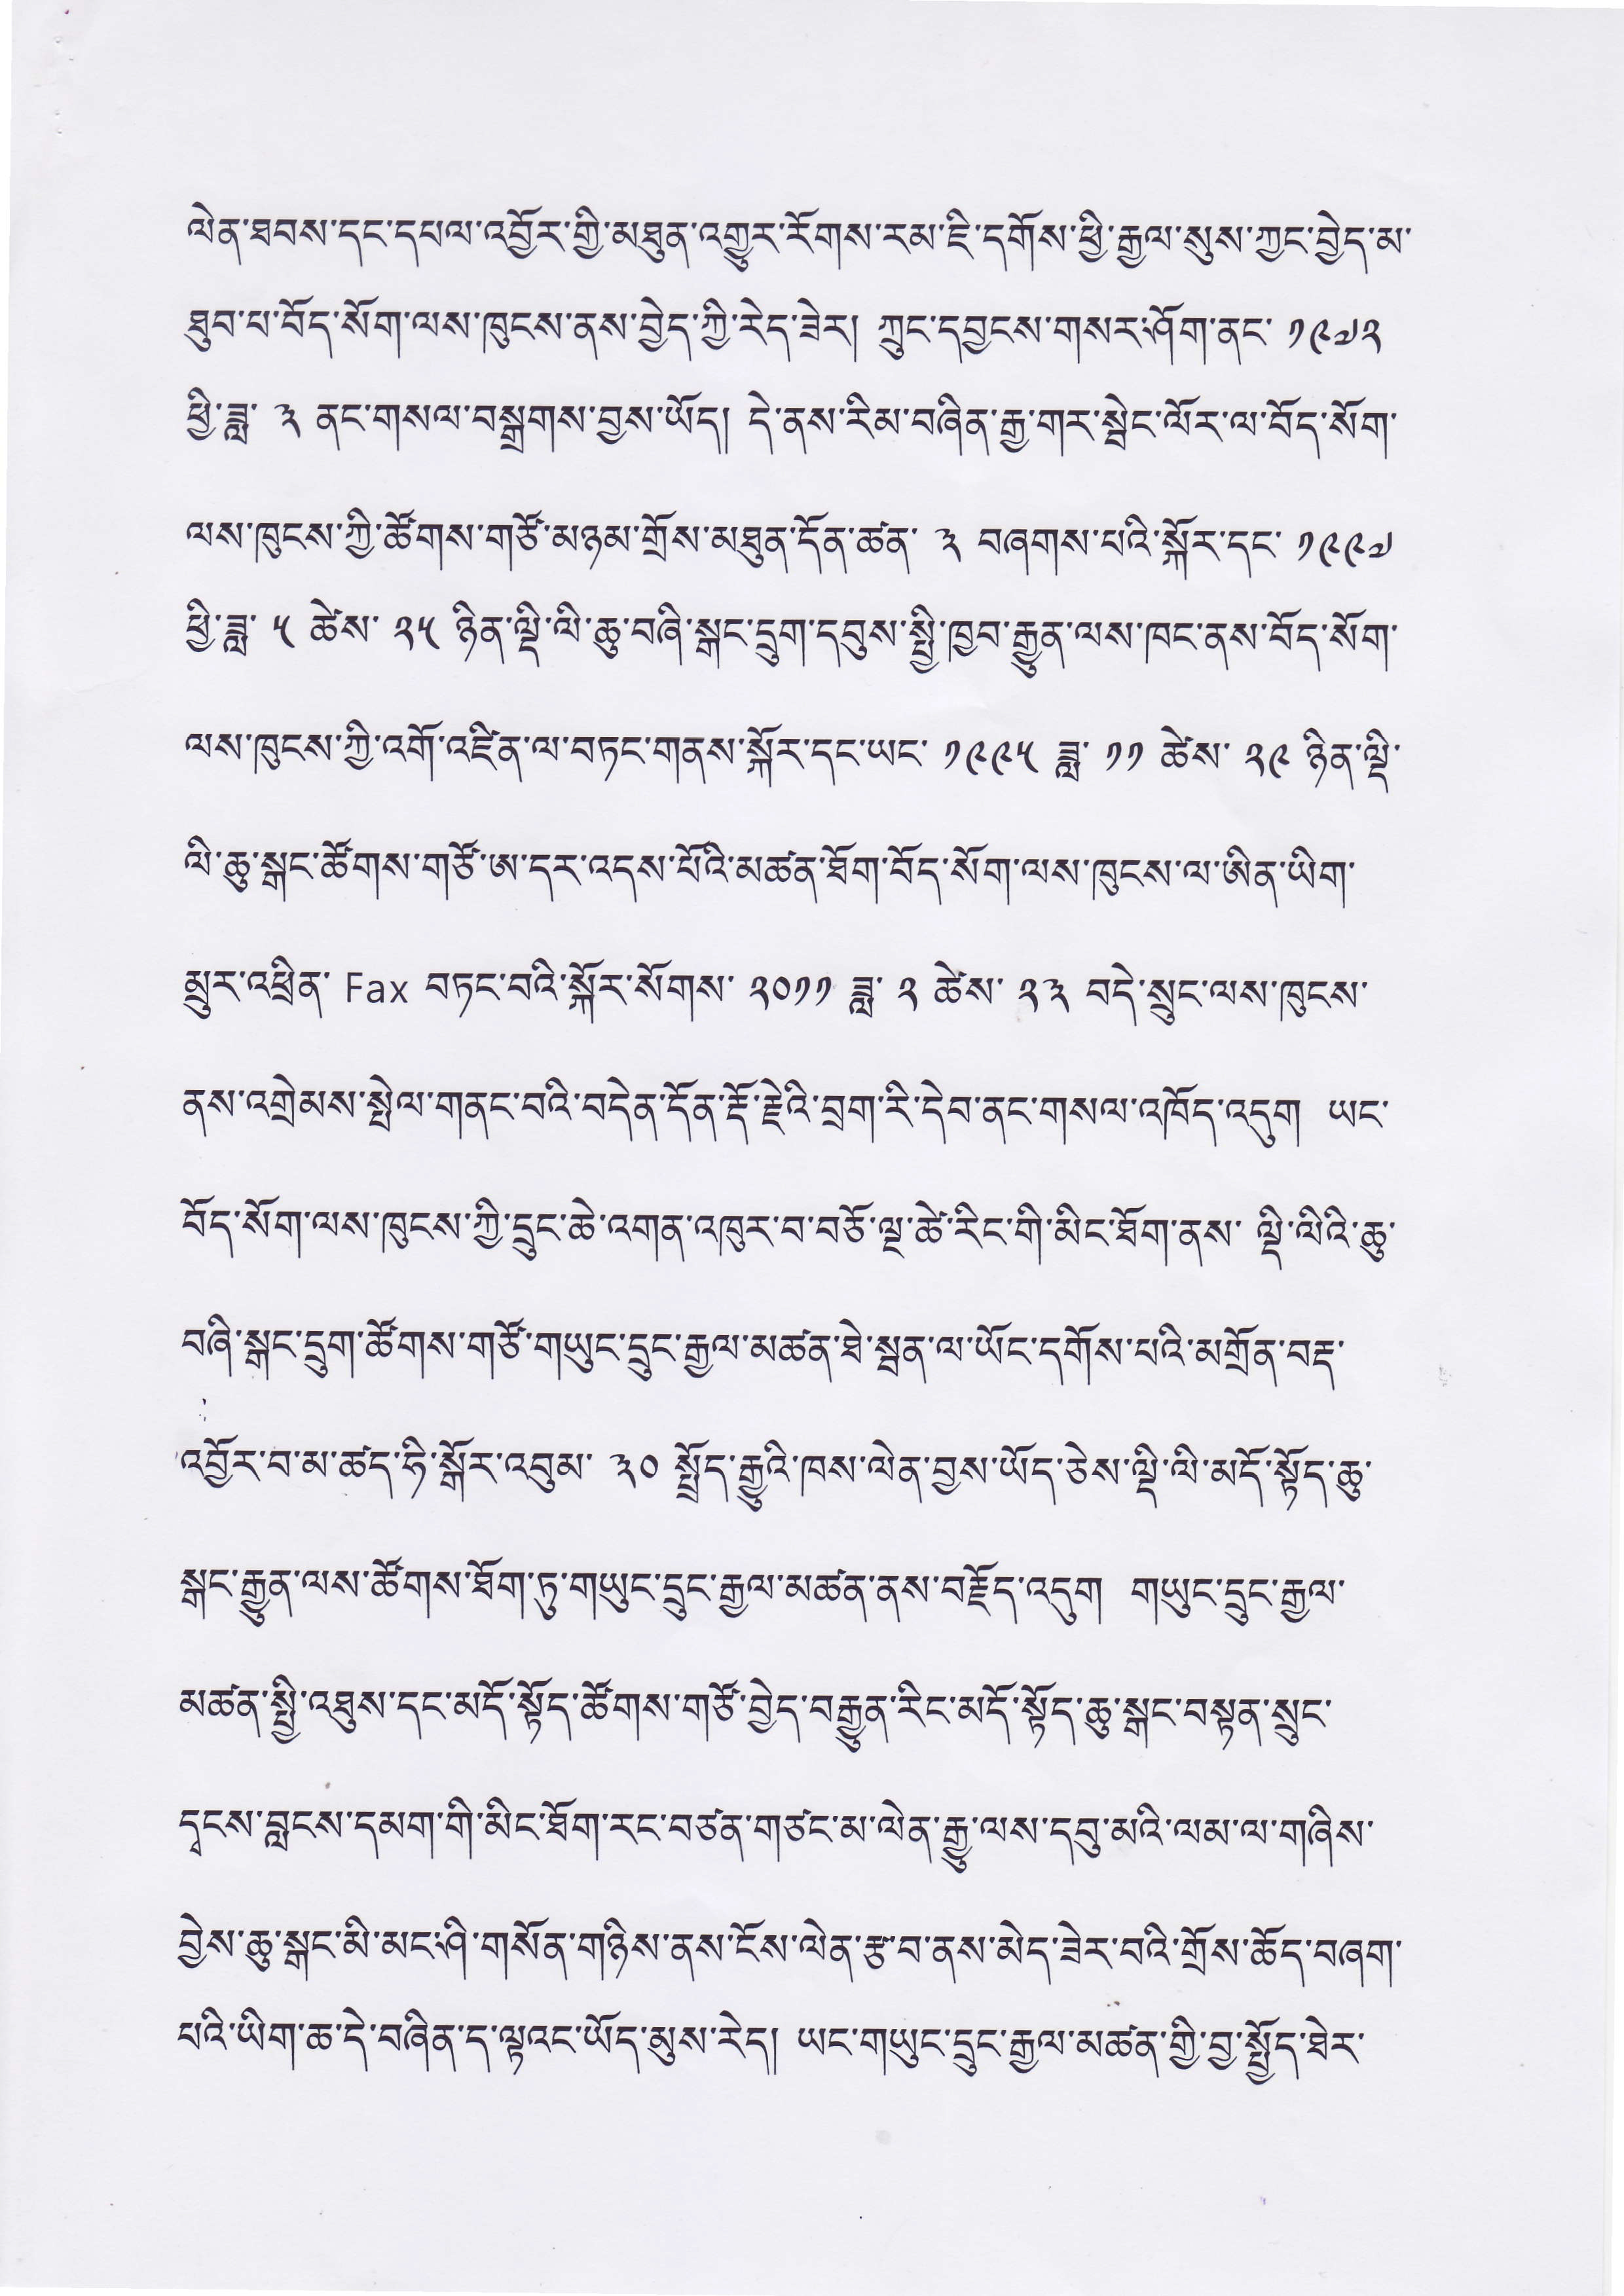 ལེན་ཐབས་དང་དཔལ་འབྱོར་གྱི་མཐུན་འགྱུར་རོགས་རམ་ཇི་དགོས་ཕྱི་རྒྱལ་སུས་ཀྱང་བྱེད་མ་
ཐུབ་པ་བོད་སོག་ལས་ཁུངས་ནས་བྱེད་ཀྱི་རེད་ཟེར། ཀྲུང་དབྱངས་གསར་ཤོག་ནང་ ༡༩༧༢
ཕྱི་ཟླ་ ༣ ནང་གསལ་བསྒྲགས་བྱས་ཡོད། དེ་ནས་རིམ་བཞིན་རྒྱ་གར་སྦེང་ལོར་ལ་བོད་སོག་
ལས་ཁུངས་ཀྱི་ཚོགས་གཙོ་མཉམ་གྲོས་མཐུན་དོན་ཚན་ ༣ བཞགས་པའི་སྐོར་དང་ ༡༩༩༧
ཕྱི་ཟླ་ ༥ ཚེས་ ༢༥ ཉིན་ལྡི་ལི་ཆུ་བཞི་སྒང་དྲུག་དབུས་སྤྱི་ཁྱབ་རྒྱུན་ལས་ཁང་ནས་བོད་སོག་
ལས་ཁུངས་ཀྱི་འགོ་འཛིན་ལ་བཏང་གནས་སྐོར་དང་ཡང་ ༡༩༩༥ ཟླ་ ༡༡ ཚེས་ ༢༩ ཉིན་ལྡི་
ལི་ཆུ་སྒང་ཚོགས་གཙོ་ཨ་དར་འདས་པོའི་མཚན་ཐོག་བོད་སོག་ལས་ཁུངས་ལ་ཨིན་ཡིག་
མྱུར་འཕྲིན་ Fax བཏང་བའི་སྐོར་སོགས་ ༢༠༡༡ ཟླ་ ༢ ཚེས་ ༢༣ བདེ་སྲུང་ལས་ཁུངས་
ནས་འགྲེམས་སྤེལ་གནང་བའི་བདེན་དོན་རྡོ་རྗེའི་བྲག་རི་དེབ་ནང་གསལ་འཁོད་འདུག ཡང་
བོད་སོག་ལས་ཁུངས་ཀྱི་དྲུང་ཆེ་འགན་འཁུར་བ་བཅོ་ལྔ་ཚེ་རིང་གི་མིང་ཐོག་ནས་ ལྡི་ལིའི་ཆུ་
བཞི་སྒང་དྲུག་ཚོགས་གཙོ་གཡུང་དྲུང་རྒྱལ་མཚན་ཐེ་སྦན་ལ་ཡོང་དགོས་པའི་མགྲོན་བརྡ་
འབྱོར་བ་མ་ཚད་ཧི་སྒོར་འབུམ་ ༣༠ སྤྲོད་རྒྱུའི་ཁས་ལེན་བྱས་ཡོད་ཅེས་ལྡི་ལི་མདོ་སྟོད་ཆུ་
སྒང་རྒྱུན་ལས་ཚོགས་ཐོག་ཏུ་གཡུང་དྲུང་རྒྱལ་མཚན་ནས་བརྗོད་འདུག གཡུང་དྲུང་རྒྱལ་
མཚན་སྤྱི་འཐུས་དང་མདོ་སྟོད་ཚོགས་གཙོ་བྱེད་བརྒྱུན་རིང་མདོ་སྟོད་ཆུ་སྒང་བསྟན་སྲུང་
དྭངས་བླངས་དམག་གི་མིང་ཐོག་རང་བཙན་གཙང་མ་ལེན་རྒྱུ་ལས་དབུ་མའི་ལམ་ལ་གཞིས་
བྱེས་ཆུ་སྒང་མི་མང་ཤི་གསོན་གཉིས་ནས་ངོས་ལེན་རྩ་བ་ནས་མེད་ཟེར་བའི་གྲོས་ཆོད་བཞག་
པའི་ཡིག་ཆ་དེ་བཞིན་ད་ལྟའང་ཡོད་མུས་རེད། ཡང་གཡུང་དྲུང་རྒྱལ་མཚན་གྱི་བྱ་སྤྱོད་ཐེར་